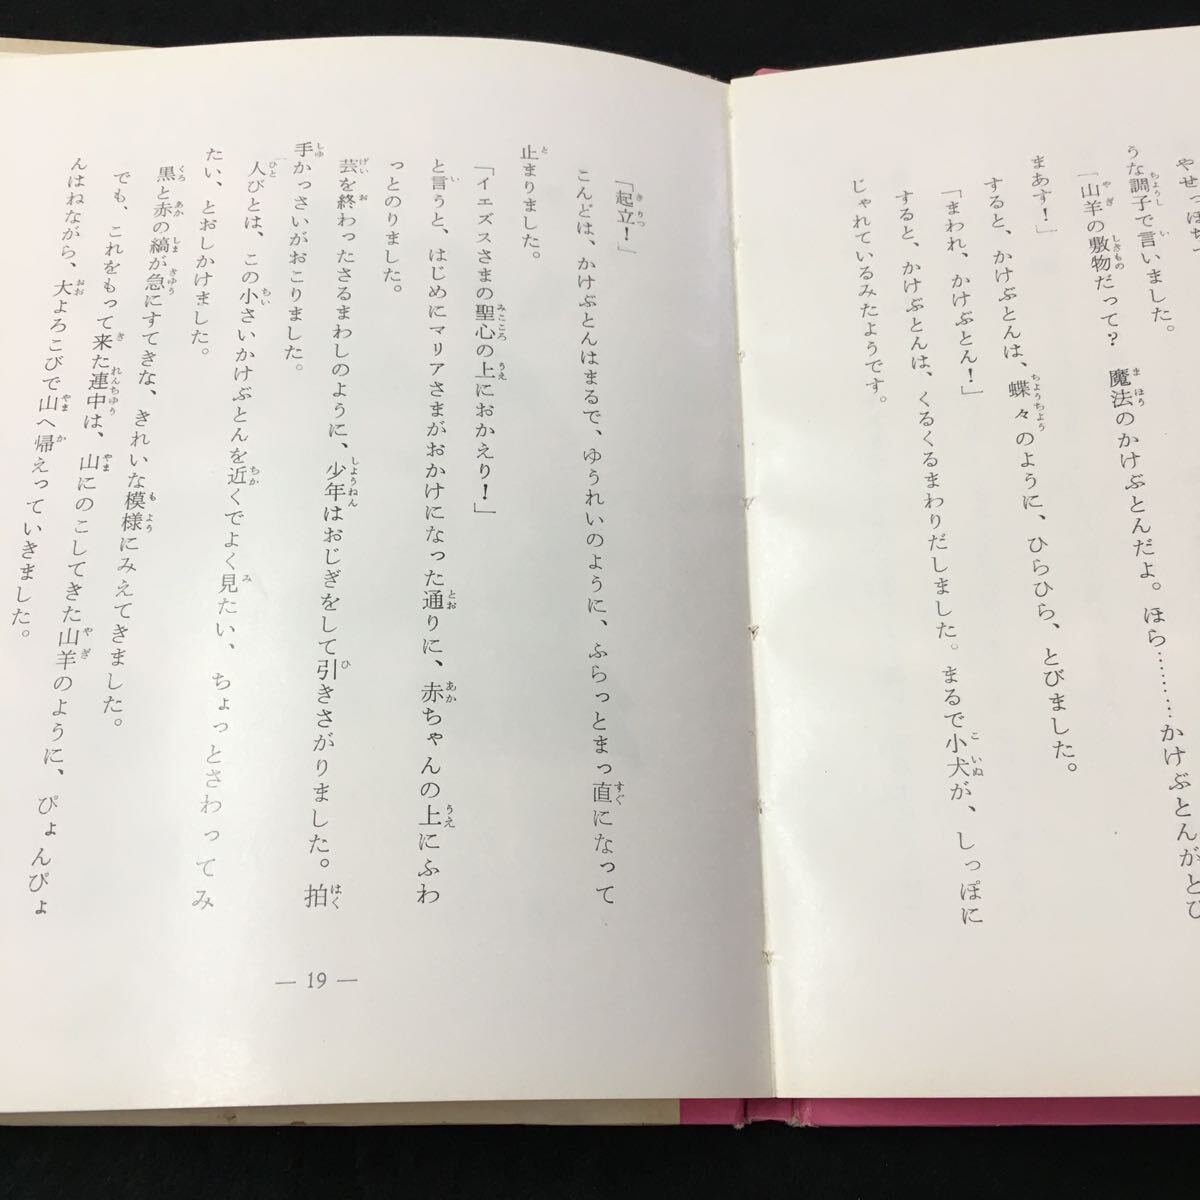 やせっぽち
うな調子で言いました。
「山羊の敷物だって？　魔法のかけぶとんだよ。ほら………かけぶとんがとび
まあす！」
すると、かけぶとんは、蝶々のように、ひらひら、とびました。
「まわれ、かけぶとん！」
すると、かけぶとんは、くるくるまわりだしました。まるで小犬が、しっぽに
じゃれているみたようです。
「起立！」
こんどは、かけぶとんはまるで、ゆうれいのように、ふらっとまっ直になって
止まりました。
「イエズスさまの聖心の上におかえり！」
と言うと、はじめにマリアさまがおかけになった通りに、赤ちゃんの上にふわ
っとのりました。
芸を終わったさるまわしのように、少年はおじぎをして引きさがりました。拍
手かっさいがおこりました。
人びとは、この小さいかけぶとんを近くでよく見たい、ちょっとさわってみ
たい、とおしかけました。
黒と赤の縞が急にすてきな、きれいな模様にみえてきました。
でも、これをもって来た連中は、山にのこしてきた山羊のように、ぴょんぴょ
んはねながら、大よろこびで山へ帰えっていきました。
— 19 —